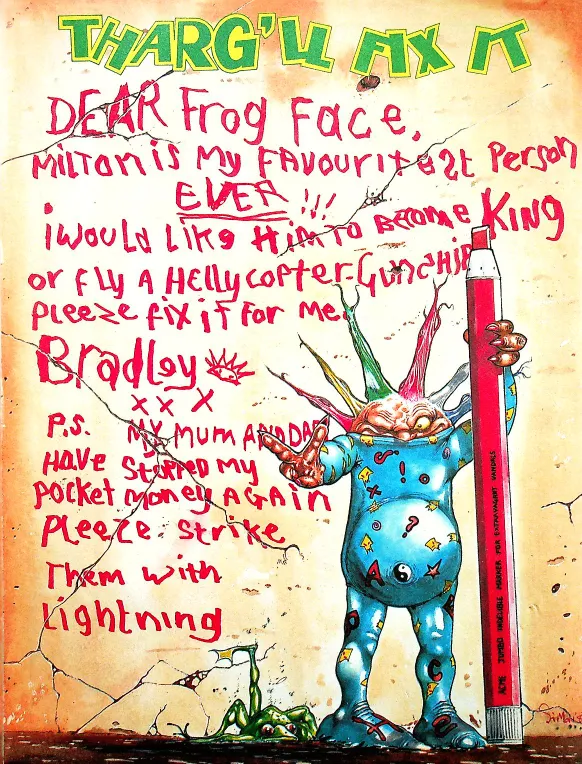 THARG'LL FIX IT
DEAR Frog Face,
MiLTon is My FAVOURITe2t Person
EVER !!!
i WoULd Like HiM To BeCOMe KING
or fLy A HeLLycopTer-GUNCHIP
pLeeZe fix iT For Me.
Bradley
x x x
P.S. MY MUM AND DAD
HAVe StoPPeD My
pocKeT MoNey AGAiN
PLeeZe Strike
THem with
Lightning
ACME JUMBO INDELIBLE MARKER FOR EXTRAVAGANT VANDALS